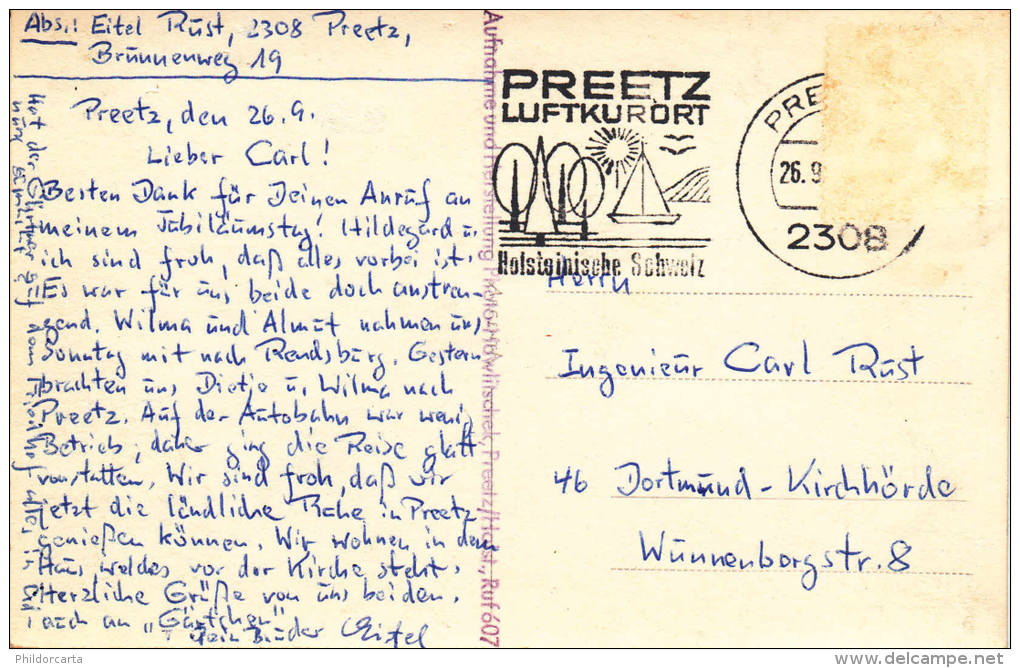 Abs.: Eitel Rust, 2308 Preetz,
Brunnenweg 19
Preetz, den 26.9.
Lieber Carl!
Besten Dank für Deinen Anruf an
meinem Jubiläumstag! Hildegard u.
ich sind froh, daß alles vorbei ist.
Es war für uns beide doch anstren-
gend. Wilma und Almut nahmen uns
Sonntag mit nach Rendsburg. Gestern
brachten uns Dietje u. Wilma nach
Preetz. Auf der Autobahn war wenig
Betrieb, daher ging die Reise glatt
vonstatten. Wir sind froh, daß wir
jetzt die ländliche Ruhe in Preetz
genießen können. Wir wohnen in dem
Haus, welches vor der Kirche steht.
Herzliche Grüße von uns beiden,
auch an „Gürtchen"
Dein Bruder Eitel
Hat der Gärtner auf dem
Aufnahme und Herstellung Photo-Hawlitschek, Preetz/Holst., Ruf 607
PREETZ
LUFTKURORT
Holsteinische Schweiz
PRE
26.9
2308
Herrn
Ingenieur Carl Rust
46 Dortmund-Kirchhörde
Wunnenbergstr. 8
Phildorcarta
www.delcampe.net